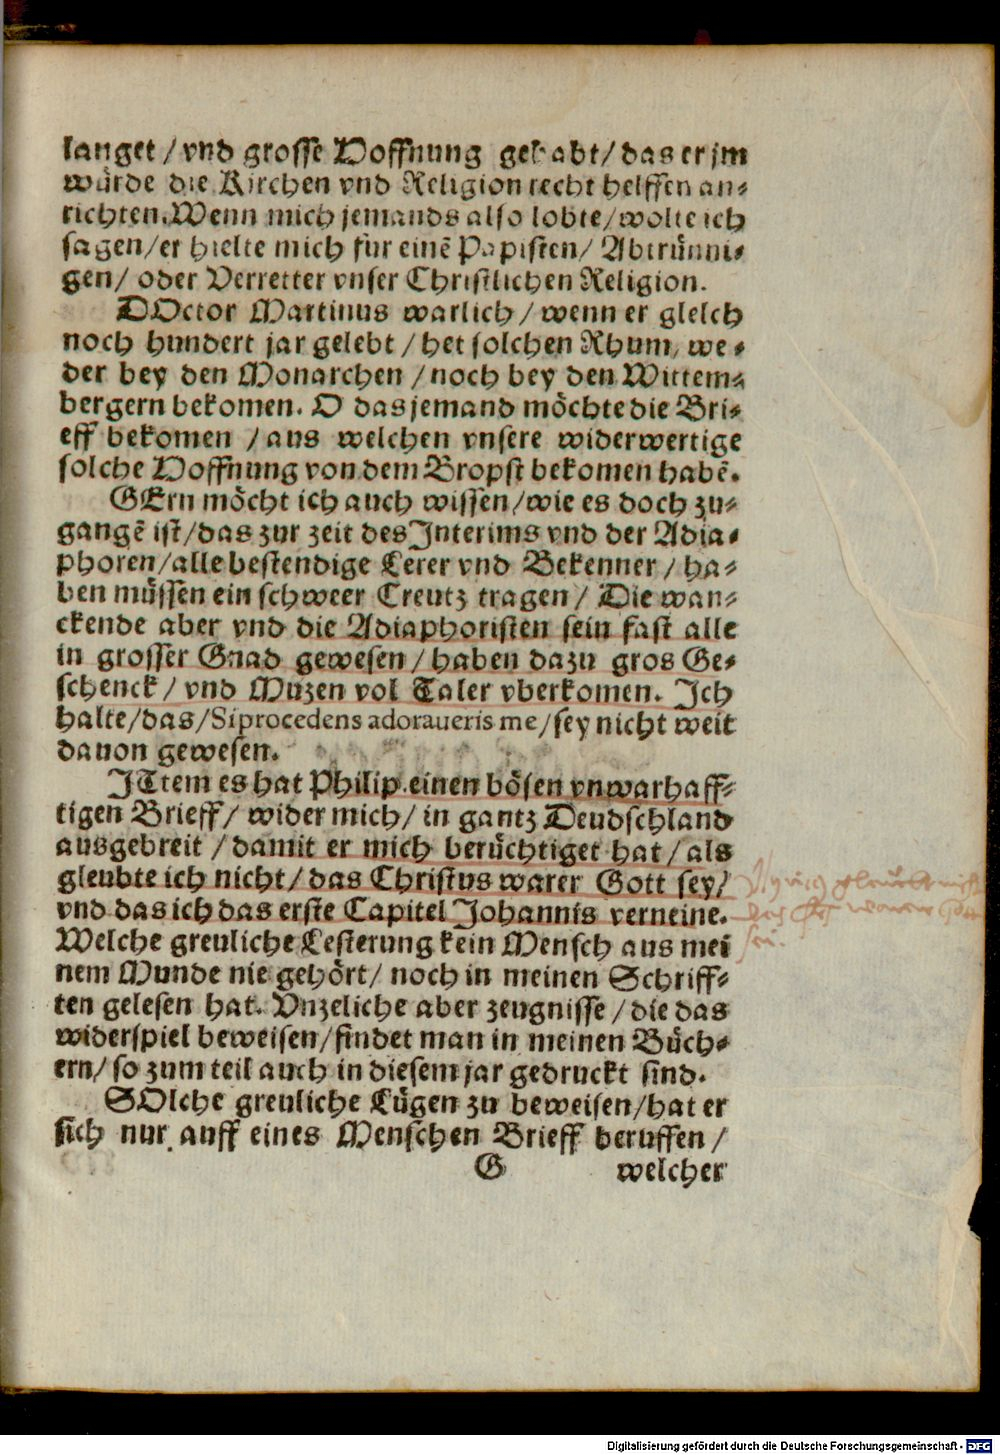 langet / vnd grosse Hoffnung gehabt / das er jm
wuͤrde die Kirchen vnd Religion recht helffen an⸗
richten. Wenn mich jemands also lobte / wolte ich
sagen / er hielte mich fuͤr einē Papisten / Abtruͤnni⸗
gen / oder Verretter vnser Christlichen Religion.
DOctor Martinus warlich / wenn er gleich
noch hundert jar gelebt / het solchen Rhum / we⸗
der bey den Monarchen / noch bey den Wittem⸗
bergern bekomen. O das jemand moͤchte die Bri⸗
eff bekomen / aus welchen vnsere widerwertige
solche Hoffnung von dem Bropst bekomen habē.
GErn moͤcht ich auch wissen / wie es doch zu⸗
gangē ist / das zur zeit des Interims vnd der Adia⸗
phoren / alle bestendige Lerer vnd Bekenner / ha⸗
ben muͤssen ein schweer Creutz tragen / Die wan⸗
ckende aber vnd die Adiaphoristen sein fast alle
in grosser Gnad gewesen / haben dazu gros Ge⸗
schenck / vnd Muzen vol Taler vberkomen. Ich
halte / das / Si procedens adoraueris me / sey nicht weit
dauon gewesen.
ITtem es hat Philip. einen boͤsen vnwarhaff⸗
tigen Brieff / wider mich / in gantz Deudschland
ausgebreit / damit er mich beruͤchtiget hat / als
gleubte ich nicht / das Christus warer Gott sey /
vnd das ich das erste Capitel Johannis verneine.
Welche greuliche Lesterung kein Mensch aus mei
nem Munde nie gehoͤrt / noch in meinen Schriff⸗
ten gelesen hat. Vnzeliche aber zeugnisse / die das
widerspiel beweisen / findet man in meinen Buͤch⸗
ern / so zum teil auch in diesem jar gedruckt sind.
SOlche greuliche Luͤgen zu beweisen / hat er
sich nur auff eines Menschen Brieff beruffen /
G welcher
gleubt nicht
warer Gott
sei.
Digitalisierung gefördert durch die Deutsche Forschungsgemeinschaft - DFG